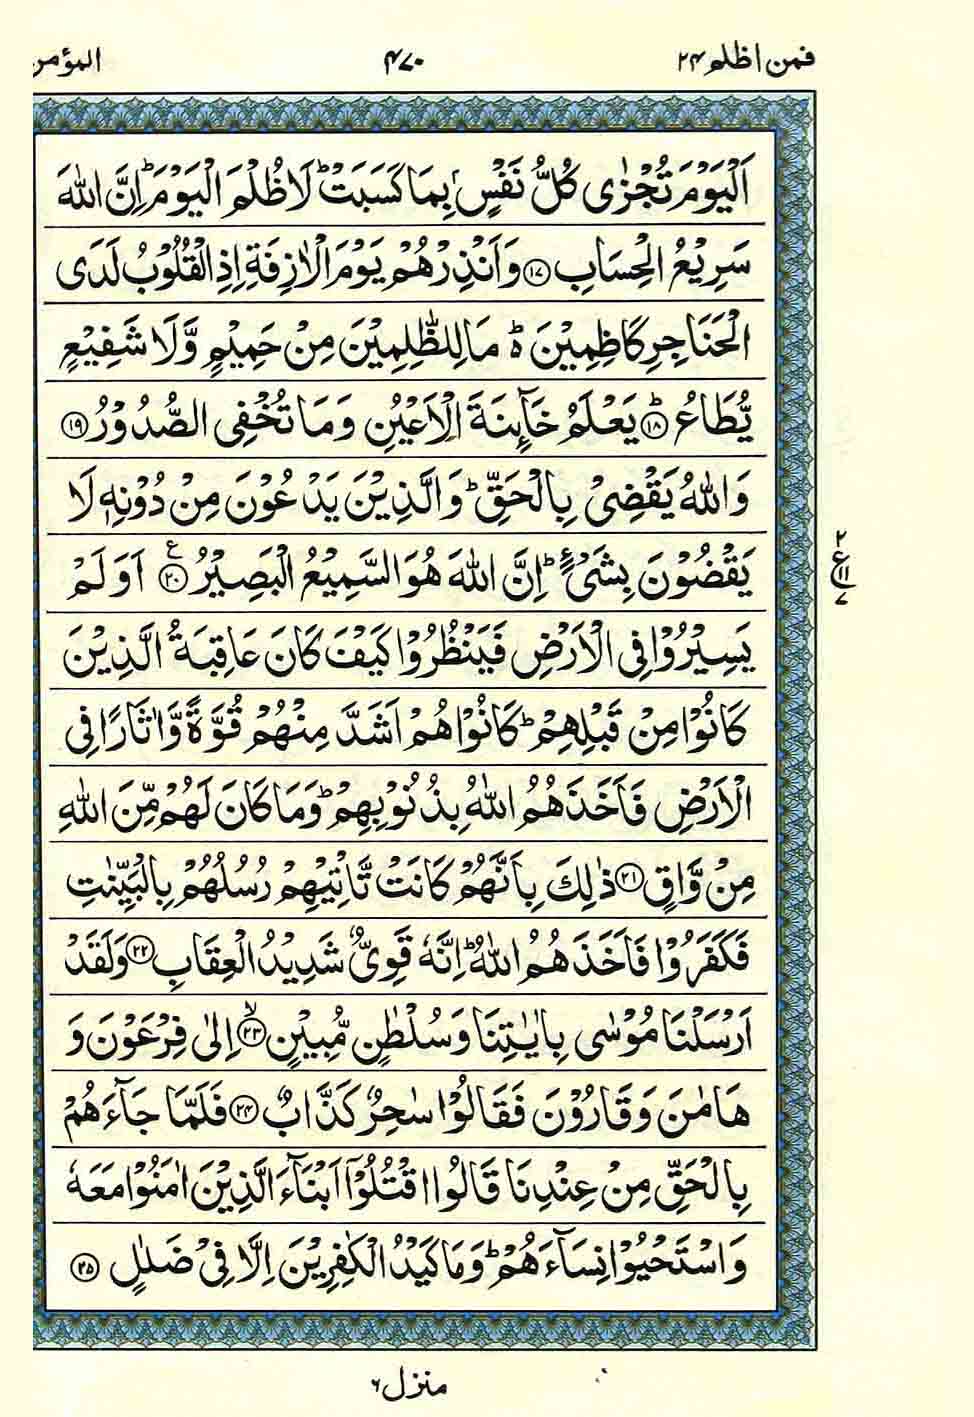 فمن اظلم ۲۴
۴۷۰
المؤمن
اَلۡیَوۡمَ تُجۡزٰی کُلُّ نَفۡسٍۭ بِمَا کَسَبَتۡ ؕ لَا ظُلۡمَ الۡیَوۡمَ ؕ اِنَّ اللّٰہَ
سَرِیۡعُ الۡحِسَابِ ﴿۱۷﴾ وَ اَنۡذِرۡہُمۡ یَوۡمَ الۡاٰزِفَۃِ اِذِ الۡقُلُوۡبُ لَدَی
الۡحَنَاجِرِ کَاظِمِیۡنَ ۬ؕ مَا لِلظّٰلِمِیۡنَ مِنۡ حَمِیۡمٍ وَّ لَا شَفِیۡعٍ
یُّطَاعُ ﴿ؕ۱۸﴾ یَعۡلَمُ خَآئِنَۃَ الۡاَعۡیُنِ وَ مَا تُخۡفِی الصُّدُوۡرُ ﴿۱۹﴾
وَ اللّٰہُ یَقۡضِیۡ بِالۡحَقِّ ؕ وَ الَّذِیۡنَ یَدۡعُوۡنَ مِنۡ دُوۡنِہٖ لَا
یَقۡضُوۡنَ بِشَیۡءٍ ؕ اِنَّ اللّٰہَ ہُوَ السَّمِیۡعُ الۡبَصِیۡرُ ﴿٪۲۰﴾ اَوَ لَمۡ
یَسِیۡرُوۡا فِی الۡاَرۡضِ فَیَنۡظُرُوۡا کَیۡفَ کَانَ عَاقِبَۃُ الَّذِیۡنَ
کَانُوۡا مِنۡ قَبۡلِہِمۡ ؕ کَانُوۡا ہُمۡ اَشَدَّ مِنۡہُمۡ قُوَّۃً وَّ اٰثَارًا فِی
الۡاَرۡضِ فَاَخَذَہُمُ اللّٰہُ بِذُنُوۡبِہِمۡ ؕ وَ مَا کَانَ لَہُمۡ مِّنَ اللّٰہِ
مِنۡ وَّاقٍ ﴿۲۱﴾ ذٰلِکَ بِاَنَّہُمۡ کَانَتۡ تَّاۡتِیۡہِمۡ رُسُلُہُمۡ بِالۡبَیِّنٰتِ
فَکَفَرُوۡا فَاَخَذَہُمُ اللّٰہُ ؕ اِنَّہٗ قَوِیٌّ شَدِیۡدُ الۡعِقَابِ ﴿۲۲﴾ وَ لَقَدۡ
اَرۡسَلۡنَا مُوۡسٰی بِاٰیٰتِنَا وَ سُلۡطٰنٍ مُّبِیۡنٍ ﴿ۙ۲۳﴾ اِلٰی فِرۡعَوۡنَ وَ
ہَامٰنَ وَ قَارُوۡنَ فَقَالُوۡا سٰحِرٌ کَذَّابٌ ﴿۲۴﴾ فَلَمَّا جَآءَہُمۡ
بِالۡحَقِّ مِنۡ عِنۡدِنَا قَالُوا اقۡتُلُوۡۤا اَبۡنَآءَ الَّذِیۡنَ اٰمَنُوۡا مَعَہٗ
وَ اسۡتَحۡیُوۡا نِسَآءَہُمۡ ؕ وَ مَا کَیۡدُ الۡکٰفِرِیۡنَ اِلَّا فِیۡ ضَلٰلٍ ﴿۲۵﴾
۲
ع ۱۱
۷
منزل ۶